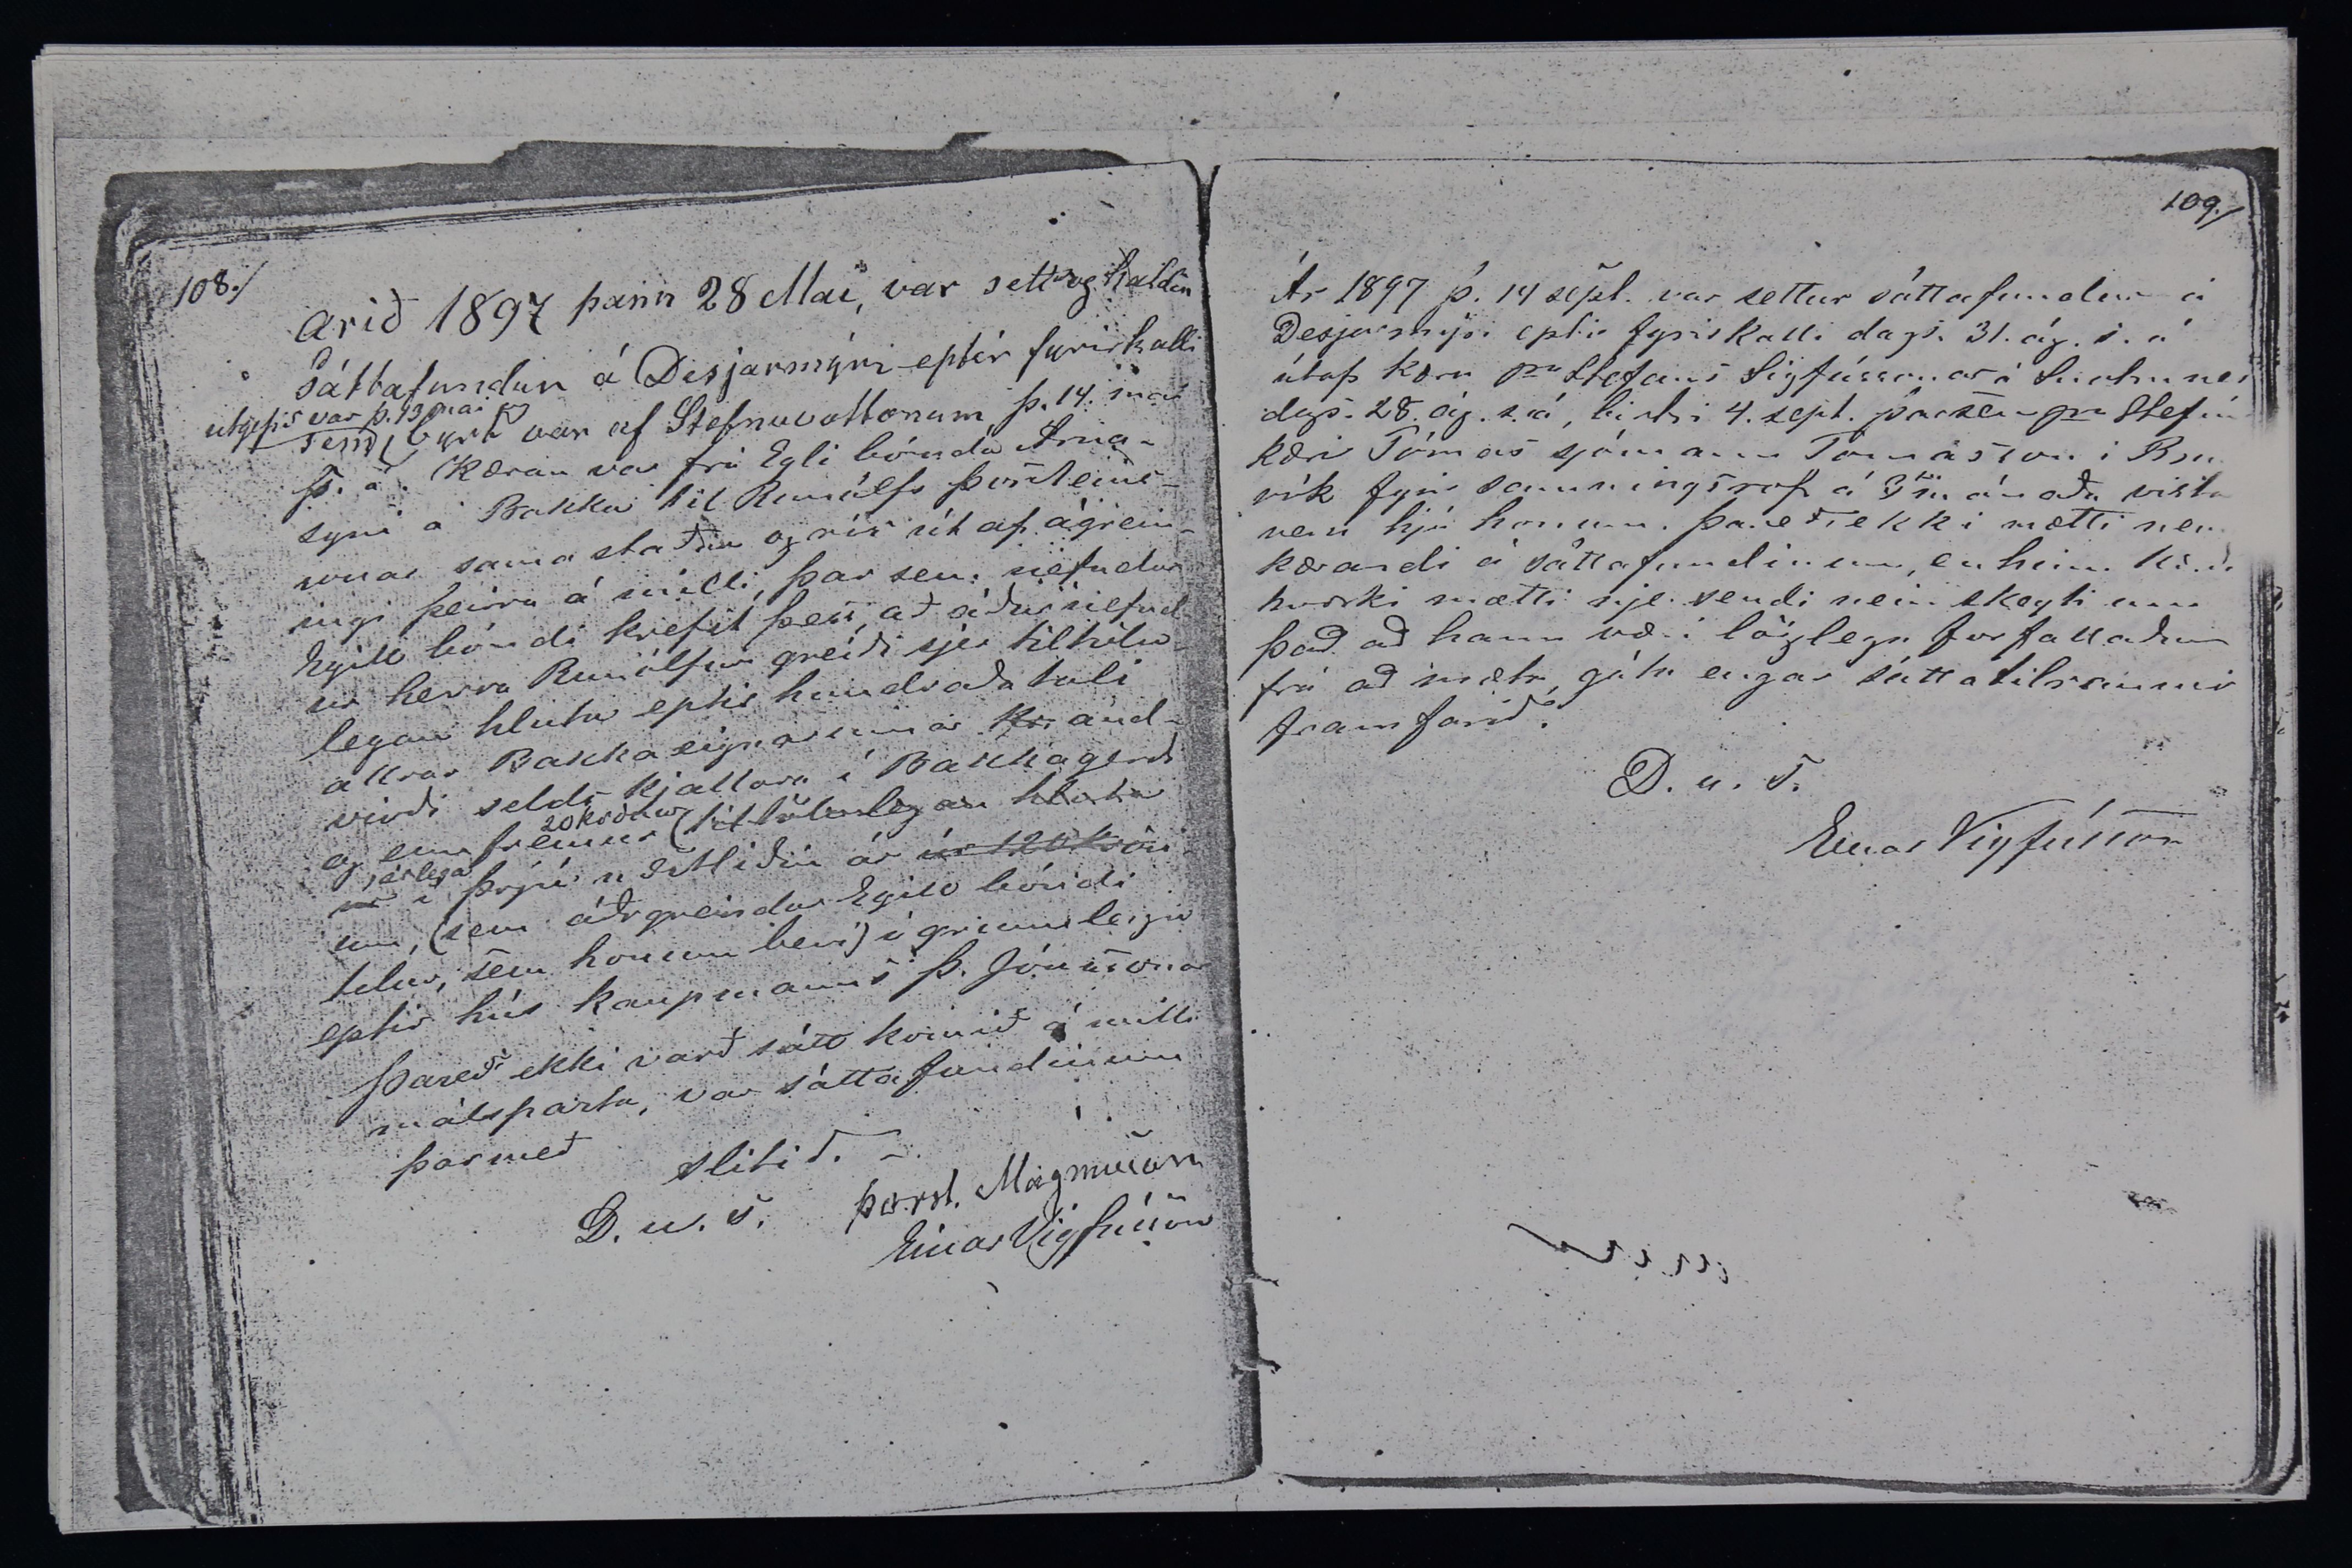 108./
Arið 1897 þann 28 Mai, var sett og haldin
Sáttafundur á Desjarmýri eptir fyrirkalli
utgefið var þ. 13 mai og
sem byrt var af Stefnuvottonum þ. 14. mai
þ. á. Kæran var frá Egli bónda Árna-
syni á Bakka til Runúlfs Þorsteins-
sonar sama staðar og rís út af ágrein-
ingi þeirra á milli, þar sem nefndur
Egill bóndi krefst þess, að áður nefnd-
ur herra Runólfur greiði sjer tiltölu-
legan hluta eptir hundraða tali
allrar Bakkaeignarinnar Kr. and-
virði selds kjallara í Bakkagerði
og enn fremur 20 króna (tiltölulegan hluta
árlega í þrjú n liðin ár úr 120 krón-
um, (sem áðrgreindur Egill bóndi
telur, sem honum beri) í grunnleigu
eptir hús kaupmanns Þ. Jónssonar
Þareð ekki varð sátt komið á milli
málsparta, var sáttafundinum
þarmeð slitið. –
D. u. s. Þorst. Magnússon
Einar Vigfússon
109./
Ár 1897 þ. 14 sept. var settur sáttafundur á
Desjarmýri eptir fyrirkalli dags. 31. ág. s. á
útaf kæru Stefáns Sigfússonar á
dags. 28. ág. s. á, birtri 4. sept. þar sem Stefán
kærir Tómas sjómann Tómásson í
vík fyrir samningsrof á 3ja mánaða vistar
veru hjá honum. Þareð ekki mætti nema
kærandi á sáttafundinum, en hinn
hvorki mætti nje sendi nein skeyti um
það að hann væri löglega forfallaður
frá að mæta, gátu engar sáttatilraunir
framfarið.
D. u. s.
Einar Vigfússon